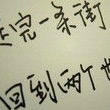 完一条街
回到两个